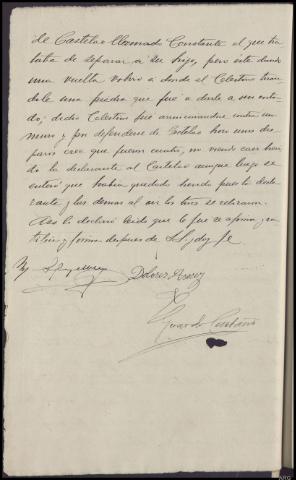 de Castelao llamado Constante el que tra
taba de separar a su hijo, pero este dando
una vuelta volvio a donde el Celestino tiran
dole una piedra que fué a darle a son enton
do; dicho Celestino fué arrinconandose contra un
muro y por defenderse de Castelao hizo unos dis
paros cree que fueron cuatro, no viendo caer heri
do la declarante al Castelao aunque luego se
enteró que habia quedado herido pues la decla
rante y los demas al oir los tiros se retiraron.
Asi lo declaró leido que le fue se afirma, ra
tifica y firma despues de S.S. doy fe
Dolores Perez
Eduardo Castaño